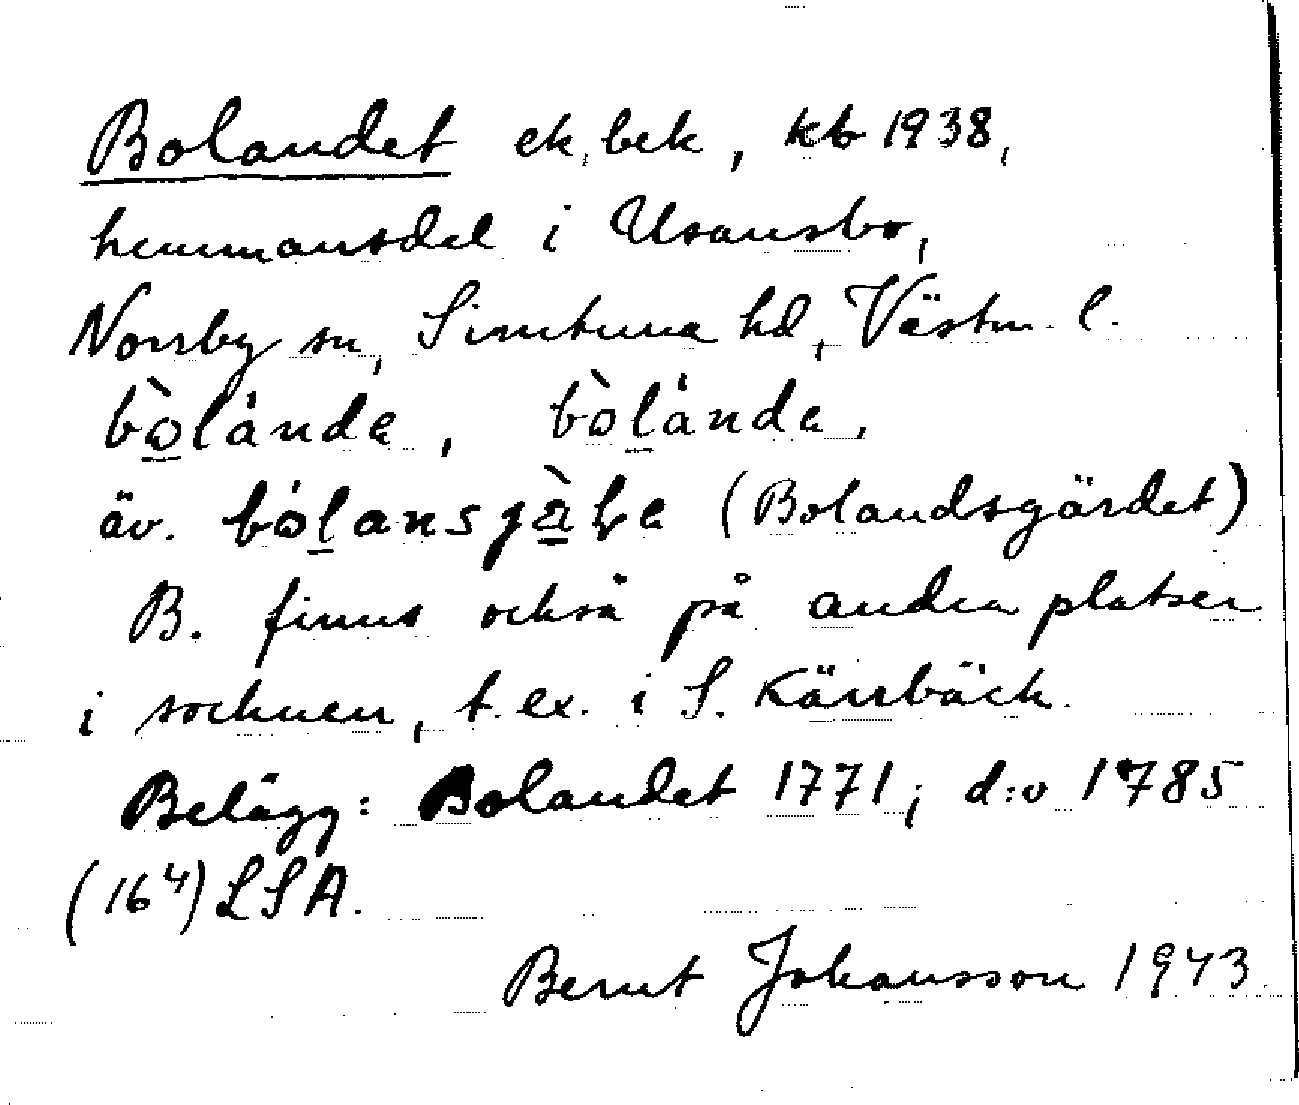 Bolandet ek, bek, kb 1938,
hemmansdel i Usansbo,
Norrby sn, Simtuna hd, Västm. l.
bòlánda, bòlánda,
äv. bólansgàḷe (Bolandsgärdet)
B. finns också på andra platser
i socknen, t. ex. i S. Kärrbäck.
Belägg: Bolandet 1771; d:o 1785
(16⁴) LSA.
Bernt Johansson 1943